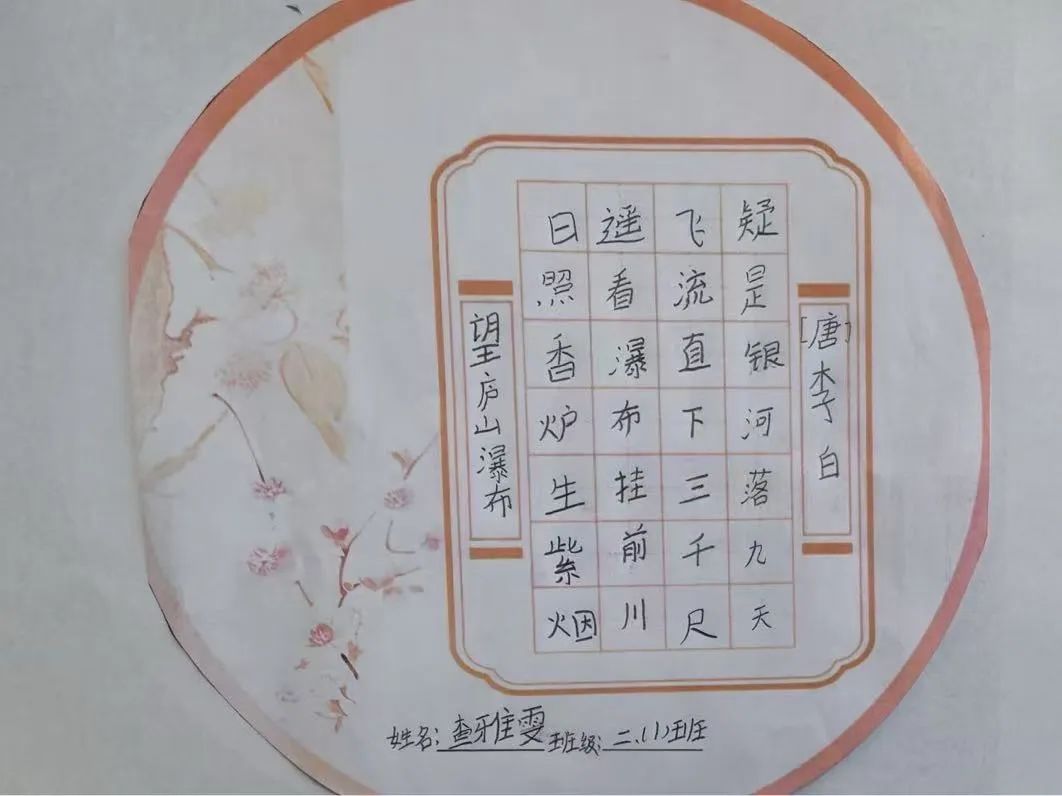 望庐山瀑布
日照香炉生紫烟
遥看瀑布挂前川
飞流直下三千尺
疑是银河落九天
[唐]李白
姓名:查雅雯班级:二、(1)班